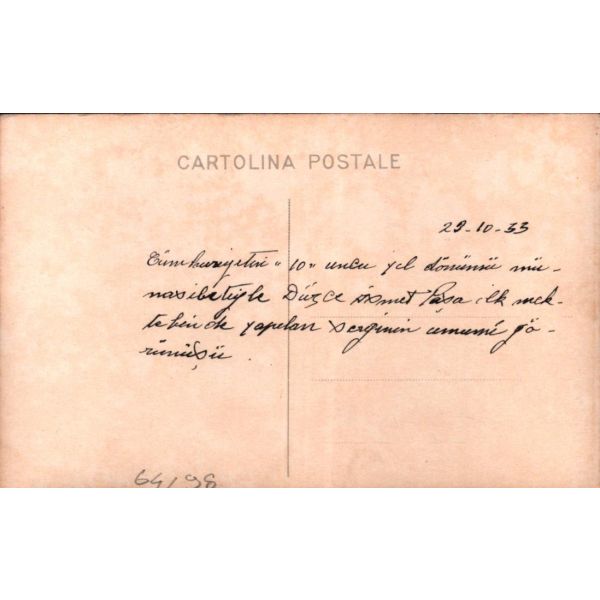 CARTOLINA POSTALE
29-10-33
Cümhuriyetin "10" uncu yıl dönümü mü-
nasibetiyle Düzce İsmet Paşa ilk mek-
tebinde yapılan serginin umumî gö-
rünüşü.
64/98